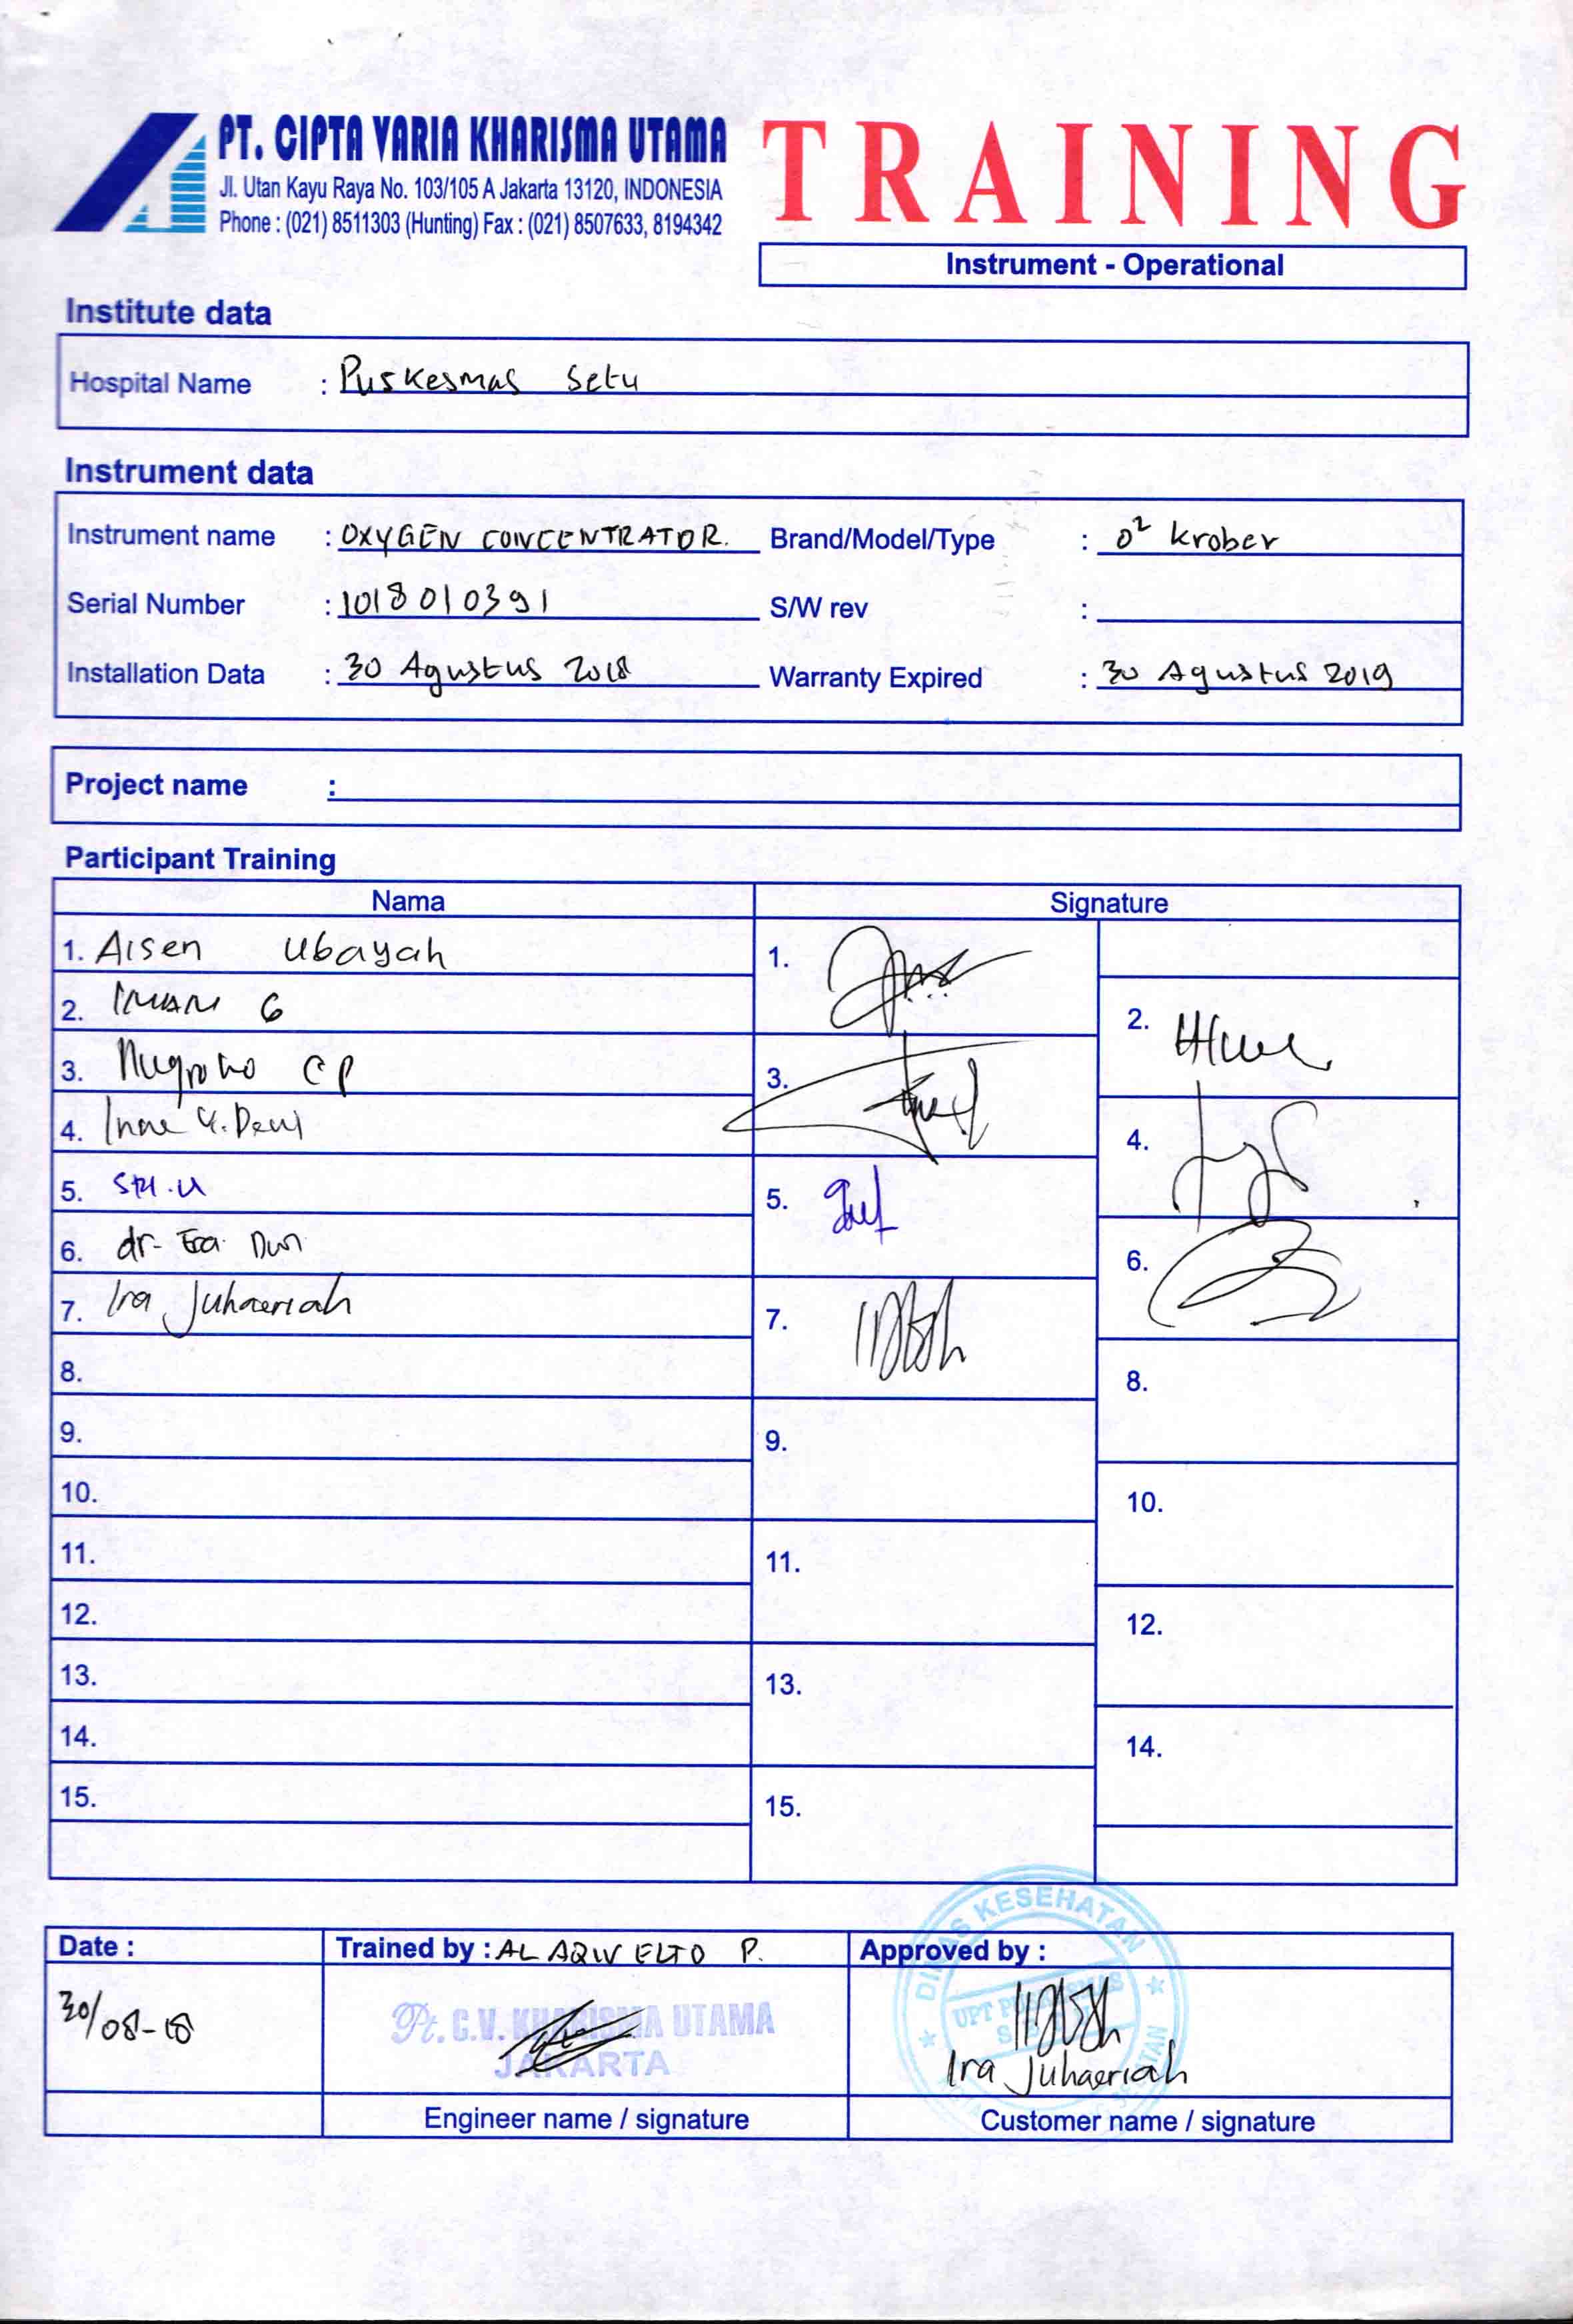 PT. CIPTA VARIA KHARISMA UTAMA
Jl. Utan Kayu Raya No. 103/105 A Jakarta 13120, INDONESIA
Phone : (021) 8511303 (Hunting) Fax : (021) 8507633, 8194342
TRAINING
Instrument - Operational
Institute data
Hospital Name : Puskesmas Setu
Instrument data
Instrument name : OXYGEN CONCENTRATOR. Brand/Model/Type : O² krober
Serial Number : 1018010391 S/W rev :
Installation Data : 30 Agustus 2018 Warranty Expired : 30 Agustus 2019
Project name :
Participant Training
Nama Signature
1. Aisen Ubayah 1.
2. IMAM G 2.
3. Nugroho CP 3.
4. Inne Y. Dewi 4.
5. 5.
6. dr. 6.
7. Ira Juhaeriah 7.
8. 8.
9. 9.
10. 10.
11. 11.
12. 12.
13. 13.
14. 14.
15. 15.
Date : Trained by : AL AQIV ELTO P. Approved by :
30/08-18
Pt. C.V. KHARISMA UTAMA
JAKARTA
DINAS KESEHATAN
UPT PUSKESMAS
SETU
Ira Juhaeriah
Engineer name / signature Customer name / signature